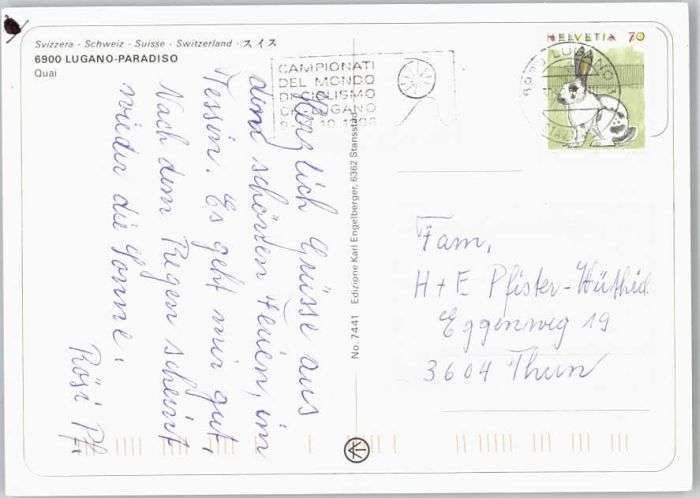 Svizzera - Schweiz - Suisse - Switzerland - スイス
6900 LUGANO-PARADISO
Quai
CAMPIONATI
DEL MONDO
DI CICLISMO
DI LUGANO
HELVETIA 70
6900 LUGANO
Herzlich Grüsse aus
dem schönen Ferien, im
Tessin. Es geht mir gut,
Nach dem Regen scheint
wieder die Sonne.
Rösi Pf.
No. 7441 Edizione Karl Engelberger, 6362 Stansstad
Fam,
H + E Pfister-
Eggenweg 19
3604 Thun